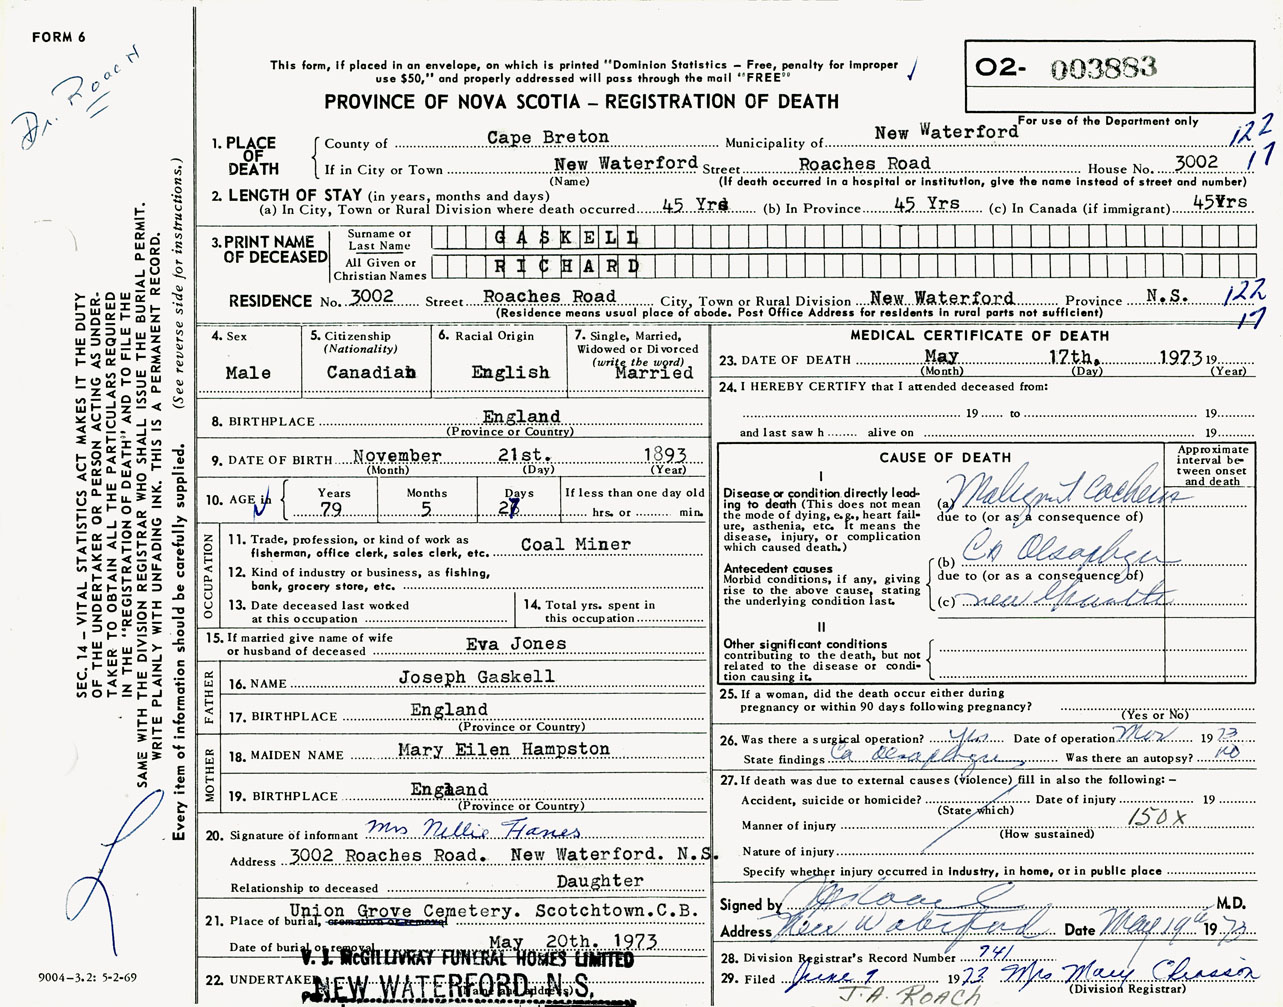 FORM 6
Dr. Roach
This form, if placed in an envelope, on which is printed "Dominion Statistics – Free, penalty for improper
use $50," and properly addressed will pass through the mail "FREE"
PROVINCE OF NOVA SCOTIA – REGISTRATION OF DEATH
O2- 003883
For use of the Department only
1. PLACE OF DEATH
County of Cape Breton Municipality of New Waterford 122
If in City or Town New Waterford Street Roaches Road House No. 3002 17
(Name) (If death occurred in a hospital or institution, give the name instead of street and number)
2. LENGTH OF STAY (in years, months and days)
(a) In City, Town or Rural Division where death occurred 45 Yrs (b) In Province 45 Yrs (c) In Canada (if immigrant) 45Yrs
3. PRINT NAME OF DECEASED
Surname or Last Name GASKELL
All Given or Christian Names RICHARD
RESIDENCE No. 3002 Street Roaches Road City, Town or Rural Division New Waterford Province N.S. 122
(Residence means usual place of abode. Post Office Address for residents in rural parts not sufficient) 17
4. Sex
Male
5. Citizenship
(Nationality)
Canadian
6. Racial Origin
English
7. Single, Married,
Widowed or Divorced
(write the word)
Married
8. BIRTHPLACE England
(Province or Country)
9. DATE OF BIRTH November 21st. 1893
(Month) (Day) (Year)
10. AGE in
Years Months Days If less than one day old
79 5 27 hrs. or min.
OCCUPATION
11. Trade, profession, or kind of work as Coal Miner
fisherman, office clerk, sales clerk, etc.
12. Kind of industry or business, as fishing,
bank, grocery store, etc.
13. Date deceased last worked
at this occupation
14. Total yrs. spent in
this occupation
15. If married give name of wife
or husband of deceased Eva Jones
FATHER
16. NAME Joseph Gaskell
17. BIRTHPLACE England
(Province or Country)
MOTHER
18. MAIDEN NAME Mary Eilen Hampston
19. BIRTHPLACE England
(Province or Country)
20. Signature of informant Mrs Nellie Hanes
Address 3002 Roaches Road. New Waterford. N.S.
Relationship to deceased Daughter
21. Place of burial, cremation or removal Union Grove Cemetery. Scotchtown.C.B.
Date of burial or removal May 20th. 1973
V. J. McGILLIVRAY FUNERAL HOMES LIMITED
22. UNDERTAKER NEW WATERFORD, N.S.
(Name and address)
MEDICAL CERTIFICATE OF DEATH
23. DATE OF DEATH May 17th. 1973 19
(Month) (Day) (Year)
24. I HEREBY CERTIFY that I attended deceased from:
19 to 19
and last saw h alive on 19
CAUSE OF DEATH
Approximate
interval be-
tween onset
and death
I
Disease or condition directly lead-
ing to death (This does not mean
the mode of dying, e.g., heart fail-
ure, asthenia, etc. It means the
disease, injury, or complication
which caused death.)
(a) Malignant Cachexia
due to (or as a consequence of)
Antecedent causes
Morbid conditions, if any, giving
rise to the above cause, stating
the underlying condition last.
(b) Ca Olsophagus
due to (or as a consequence of)
(c) new Growth
II
Other significant conditions
contributing to the death, but not
related to the disease or condi-
tion causing it.
25. If a woman, did the death occur either during
pregnancy or within 90 days following pregnancy?
(Yes or No)
26. Was there a surgical operation? yes Date of operation Mar 1973
State findings Ca Olsophagus Was there an autopsy? no
27. If death was due to external causes (violence) fill in also the following: –
Accident, suicide or homicide? Date of injury 19
(State which)
Manner of injury 150x
(How sustained)
Nature of injury
Specify whether injury occurred in industry, in home, or in public place
Signed by M.D.
Address New Waterford Date May 19th 1973
28. Division Registrar's Record Number 741
29. Filed June 9 1973 Mrs Mary Chiasson
(Division Registrar)
J.A. ROACH
SEC. 14 – VITAL STATISTICS ACT MAKES IT THE DUTY
OF THE UNDERTAKER OR PERSON ACTING AS UNDER-
TAKER TO OBTAIN ALL THE PARTICULARS REQUIRED
IN THE "REGISTRATION OF DEATH" AND TO FILE THE
SAME WITH THE DIVISION REGISTRAR WHO SHALL ISSUE THE BURIAL PERMIT.
WRITE PLAINLY WITH UNFADING INK. THIS IS A PERMANENT RECORD.
Every item of information should be carefully supplied. (See reverse side for instructions.)
9004-3.2: 5-2-69